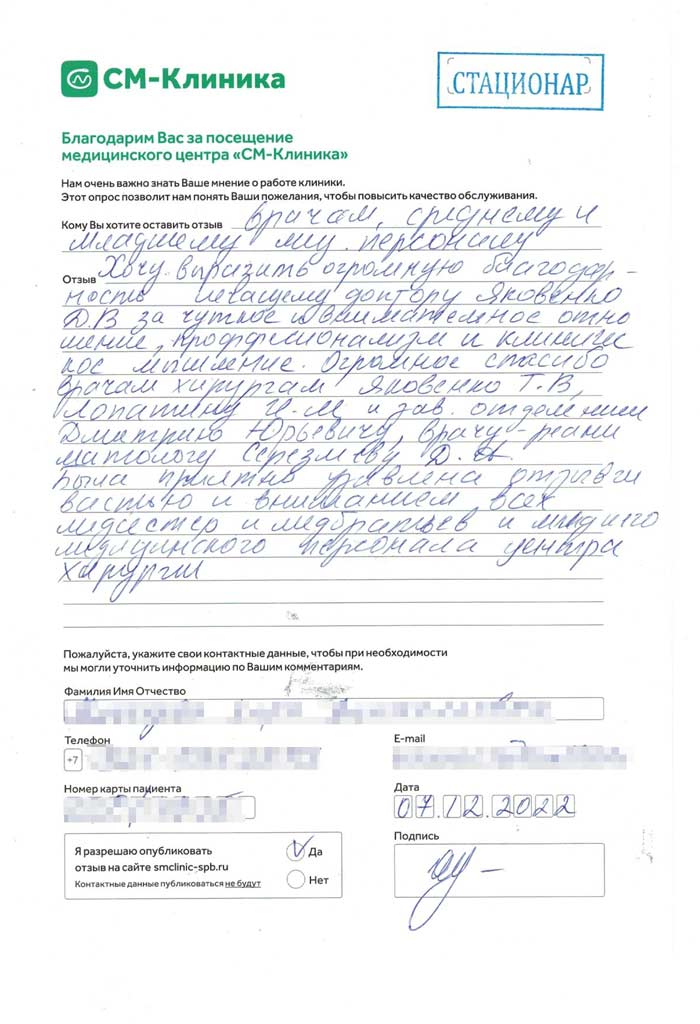 СМ-Клиника
СТАЦИОНАР
Благодарим Вас за посещение
медицинского центра «СМ-Клиника»
Нам очень важно знать Ваше мнение о работе клиники.
Этот опрос позволит нам понять Ваши пожелания, чтобы повысить качество обслуживания.
Кому Вы хотите оставить отзыв врачам, среднему и
младшему персоналу
Отзыв Хочу выразить огромную благодар-
ность лечащему доктору Яковенко
Д.В за чуткое и внимательное отно
шение, профессионализм и клиничес
кое мышление. Огромное спасибо
врачам хирургам Яковенко Т.В,
Лопатину И.М и зав. отделением
Дмитрию Юрьевичу, врачу-реани
матологу Д.А.
Была приятно удивлена отзывчи
востью и вниманием всех
медсестер и медбратьев и младшего
медицинского персонала центра
хирургии
Пожалуйста, укажите свои контактные данные, чтобы при необходимости
мы могли уточнить информацию по Вашим комментариям.
Фамилия Имя Отчество
Телефон
E-mail
+7
Номер карты пациента
Дата
07.12.2022
Я разрешаю опубликовать
отзыв на сайте smclinic-spb.ru
Контактные данные публиковаться не будут
Да
Нет
Подпись